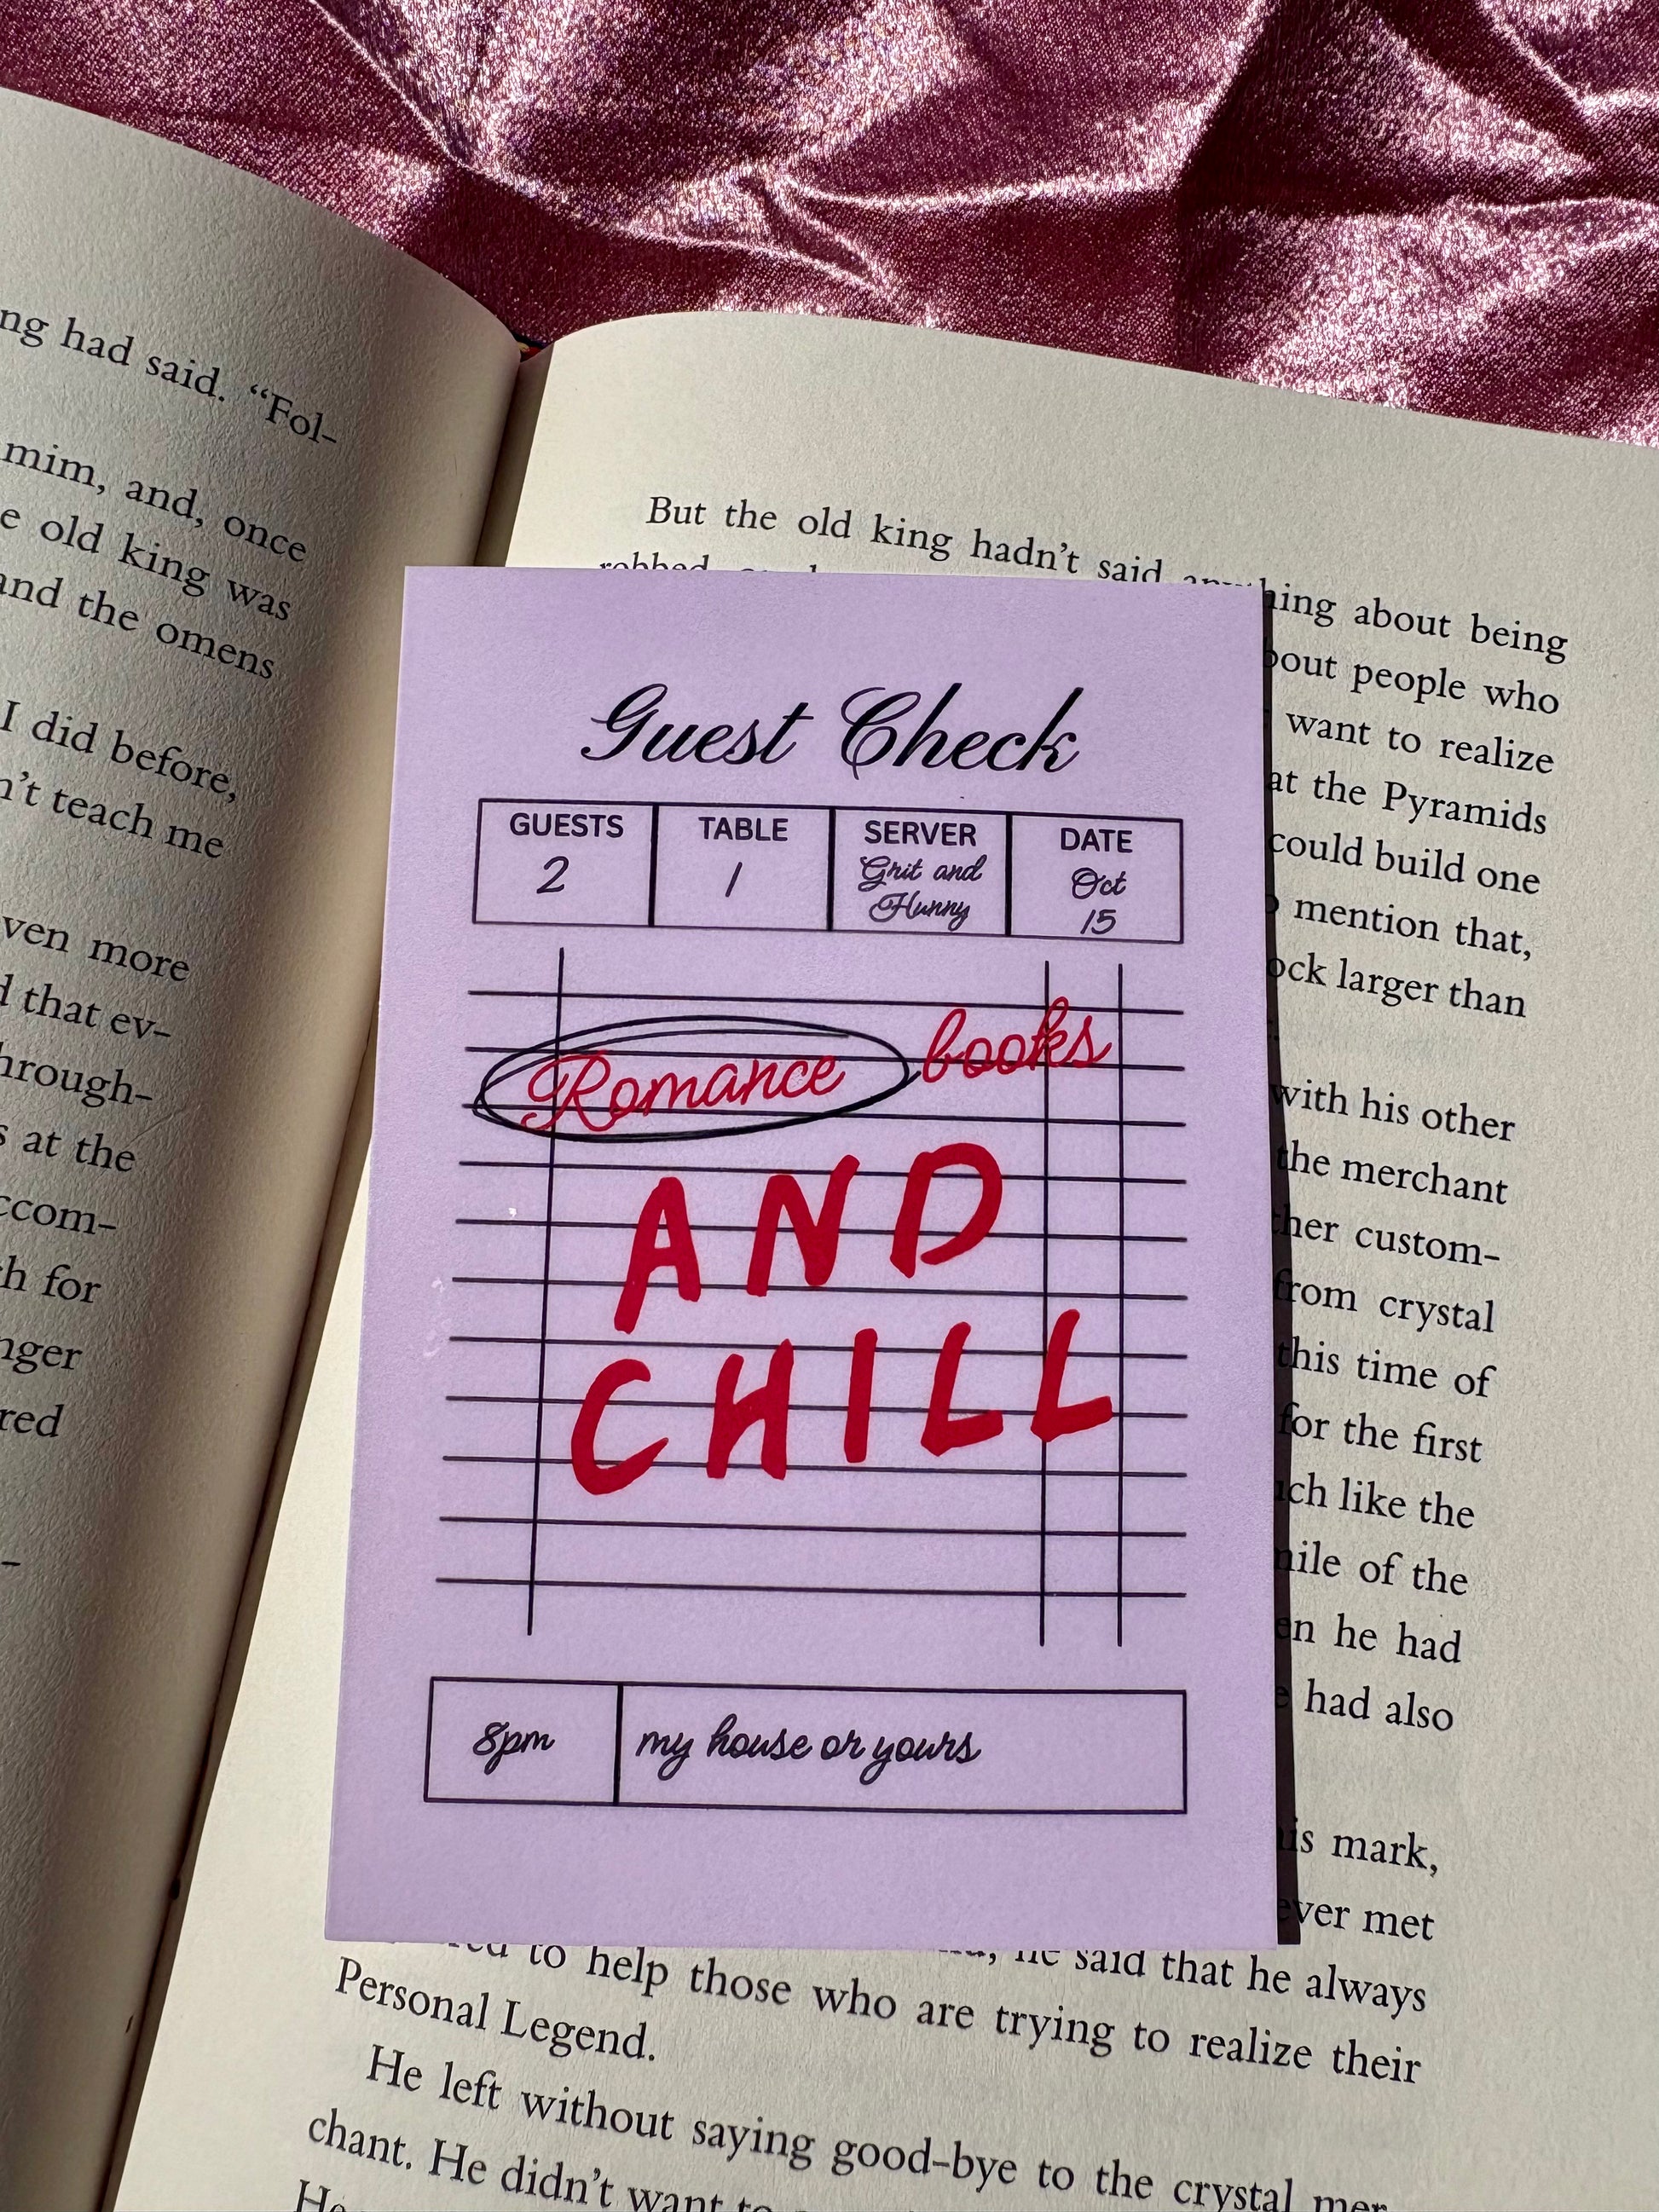 ng had said. “Fol-
mim, and, once
e old king was
and the omens
I did before,
n’t teach me
ven more
d that ev-
hrough-
s at the
ccom-
h for
nger
red
-
But the old king hadn’t said anything about being
robbed
bout people who
want to realize
at the Pyramids
could build one
mention that,
ock larger than
with his other
the merchant
ther custom-
from crystal
this time of
for the first
uch like the
mile of the
en he had
e had also
his mark,
ever met
to help those who are trying to realize their
he said that he always
Personal Legend.
He left without saying good-bye to the crystal mer
chant. He didn’t want to
He
Guest Check
GUESTS TABLE SERVER DATE
2 1 Grit and Oct
Hunny 15
Romance books
AND
CHILL
8pm my house or yours